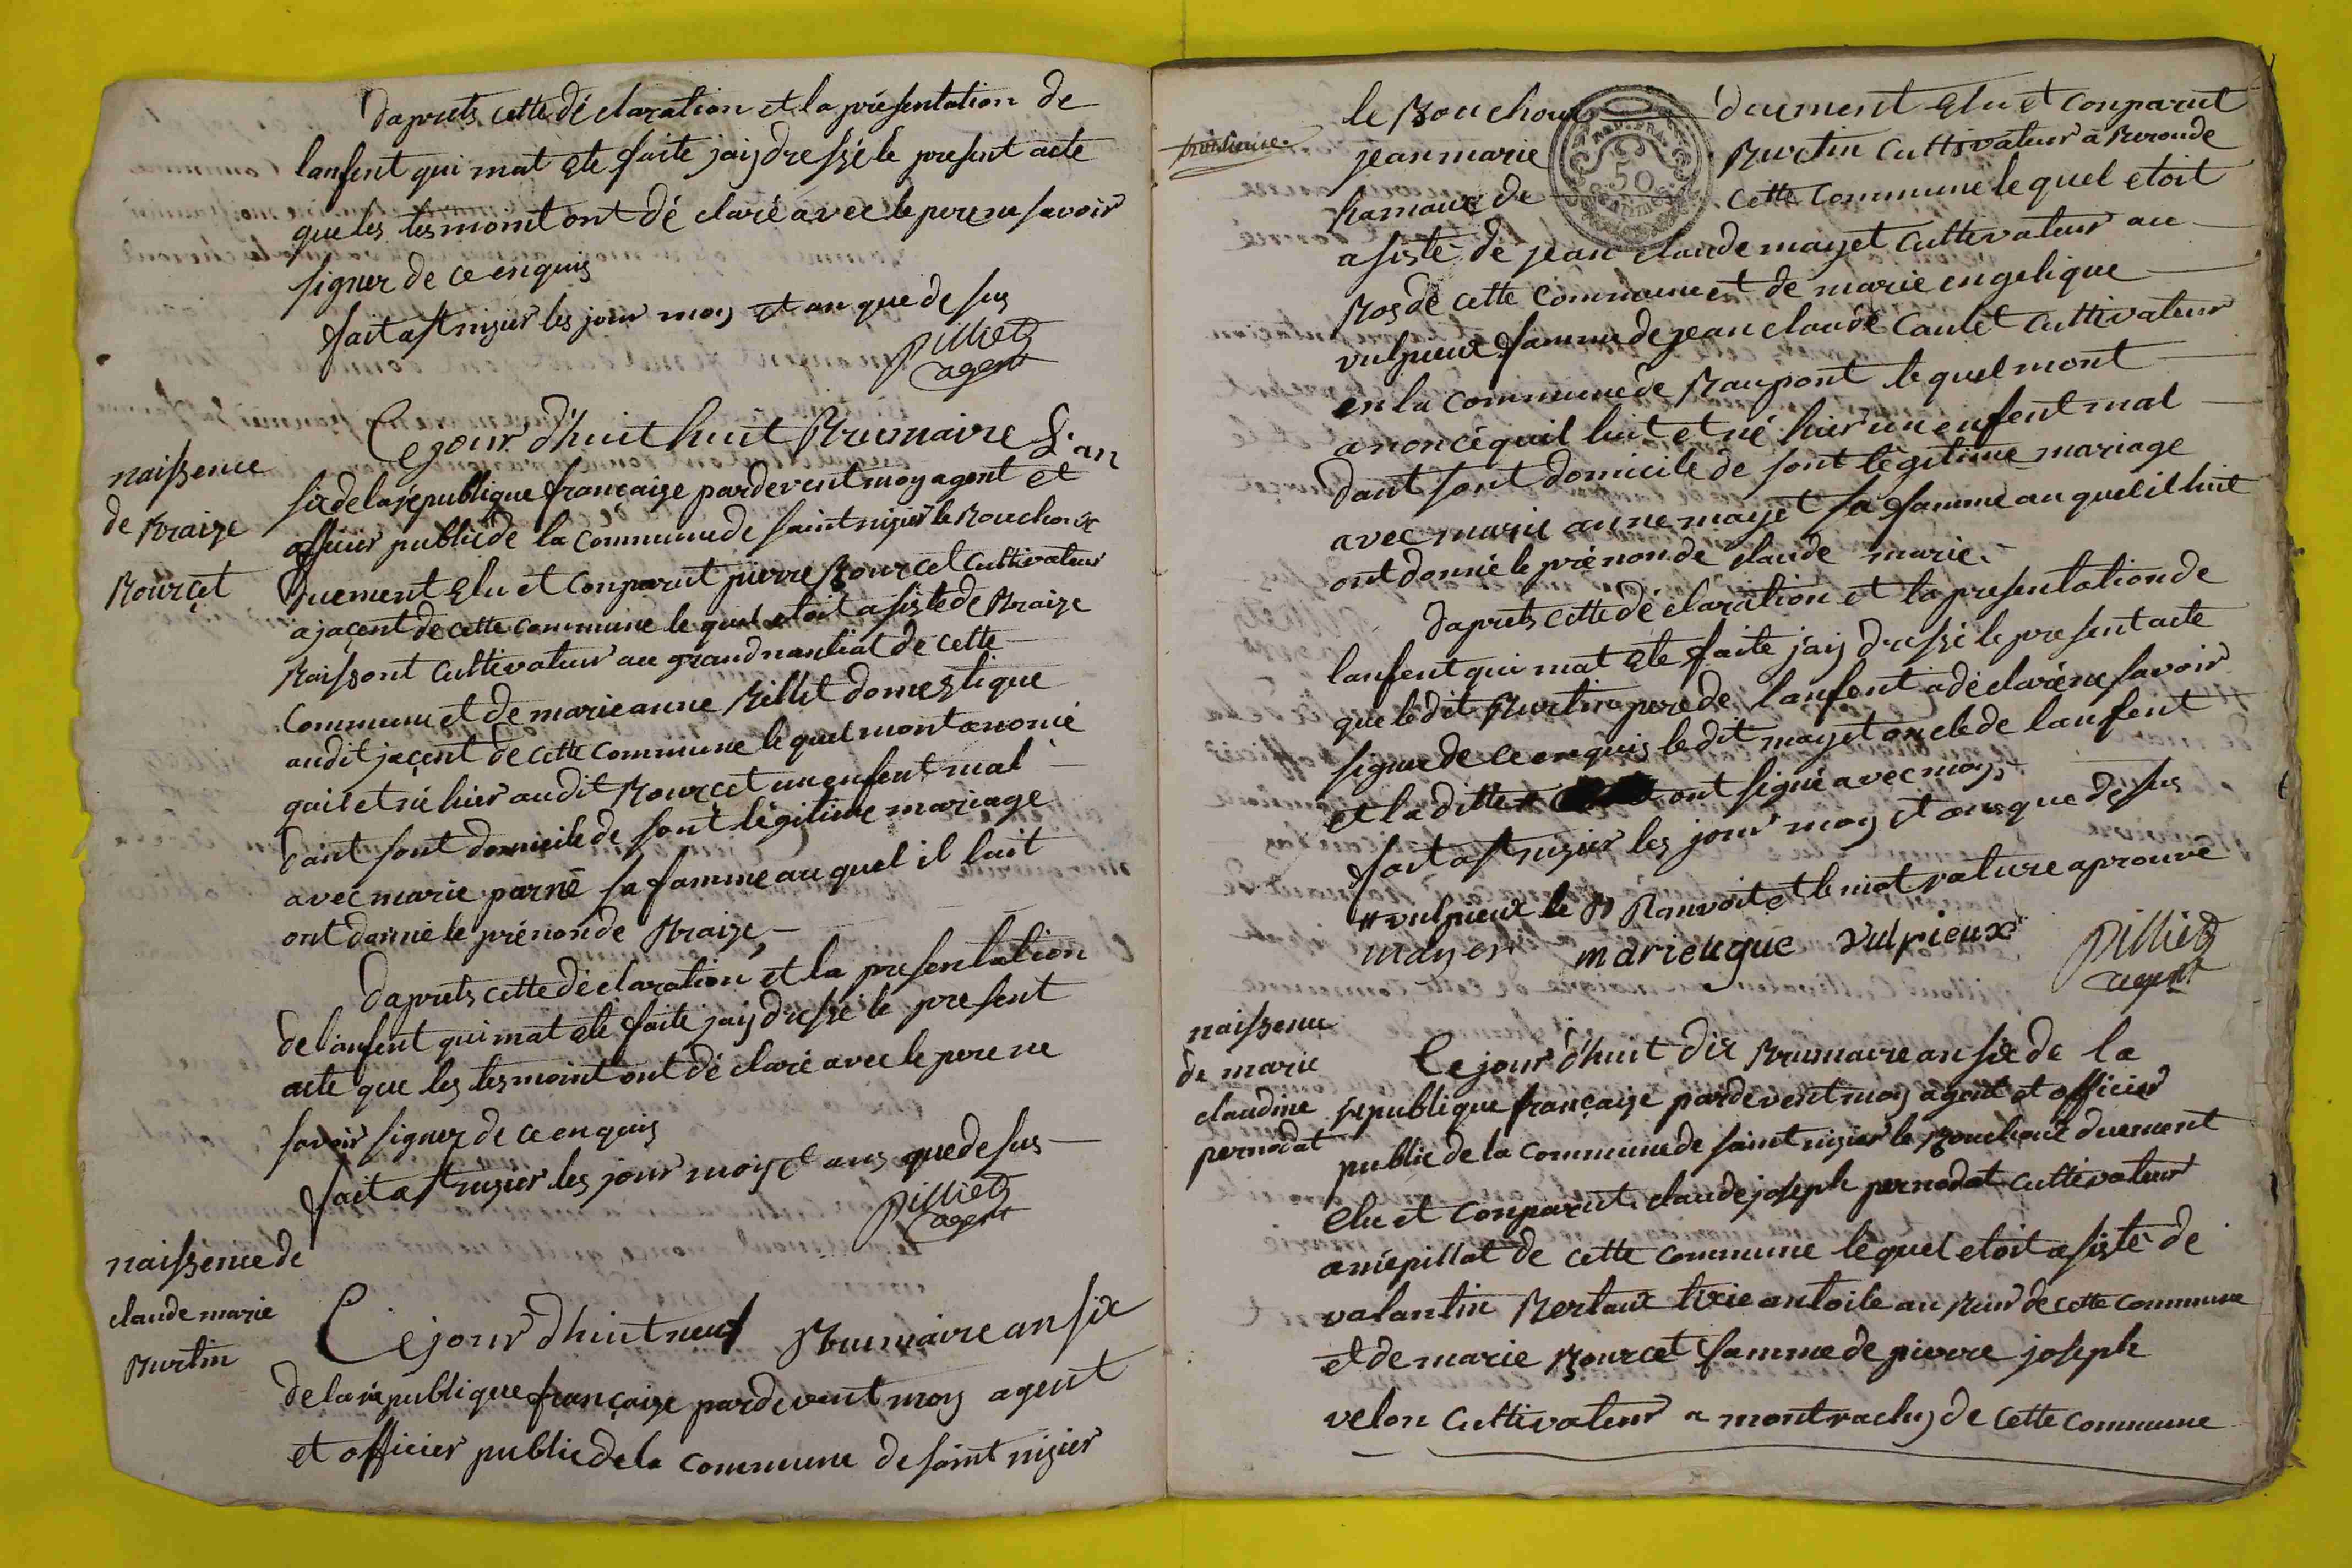 daprets cette dé claration et la présentation de
lanfent qui mat ete faite jaij dressé le present acte
que les tesmoint ont dé claré avec le pere ne savoir
signer de ce enquis
fait a st nizier les jour moy et an que de sus
pilliet
agent
naissence
de Braize
Bourcet
Ce jour d'huit huit Brumaire L'an
six de la republique française pardevent moy agent et
officier publicde la Commune de saint nizier le Bouchoux
duement Elu et Conparut pierre Bourcet Cultivateur
a jacent de cette commune le quel etoit asisté de Braize
Baissont Cultivateur au grand nantiat de cette
Commune et de marie anne Billet domestique
audit jacent de cette commune le quel mont anoncé
quil et né hier audit Bourcet un enfent mal
dant sont domicile de sont légitime mariage
avec marie parné sa famme au quel il luit
ont donné le prénon de Braize
daprets cette dé claration et la presentation
de lanfent qui mat ete faite jaij dressé le present
acte que les tesmoint ont dé claré avec le pere ne
savoir signer de ce enquis
fait a st nizier les jour moy et ans que de sus
pilliet
agent
naissence de
claude marie
Burtin
Ce jour d'huit neuf Brumaire an six
de la republique française pardevent moy agent
et officier publicde la Commune de saint nizier
le Bouchoux duement Elu et Conparut
jean marie Burtin Cultivateur a Beroude
hamaux de cette Commune le quel etoit
REP. FRA.
50
asisté de jean claude mayet Cultivateur au
Bos de cette Commune et de marie engelique
vulpieux famme de jean claude Caulet Cultivateur
en la commune de Baupont le quel mont
anoncé quil luit et né hier un enfent mal
dant sont domicile de sont légitime mariage
avec marie anne mayet sa famme au quel il luit
ont donné le prénon de claude marie
daprets cette dé claration et la presentation de
lanfent qui mat ete faite jaij dressé le present acte
que ledit Burtin pere de lanfent a dé claré ne savoir
signer de ce enquis ledit mayet oncle de lanfent
et la ditte # ont signé avec moy
fait a st nizier les jour moy et ans que de sus
# vulpieux le Ranvoit et le mot rature aprouvé
mayet marieugue vulpieux
pilliet
agent
naissence
de marie
claudine
pernodat
Ce jour d'huit dix Brumaire an six de la
republique française pardevent moy agent et officier
public de la Commune de saint nizier le Bouchoux duement
Elu et Conparut claude joseph pernodat Cultivateur
a népillat de cette commune lequel etoit asisté de
valantin Bertaux tixie antoile au Bur de cette commune
et de marie Bourcet famme de pierre joseph
velon Cultivateur a montrachy de cette commune